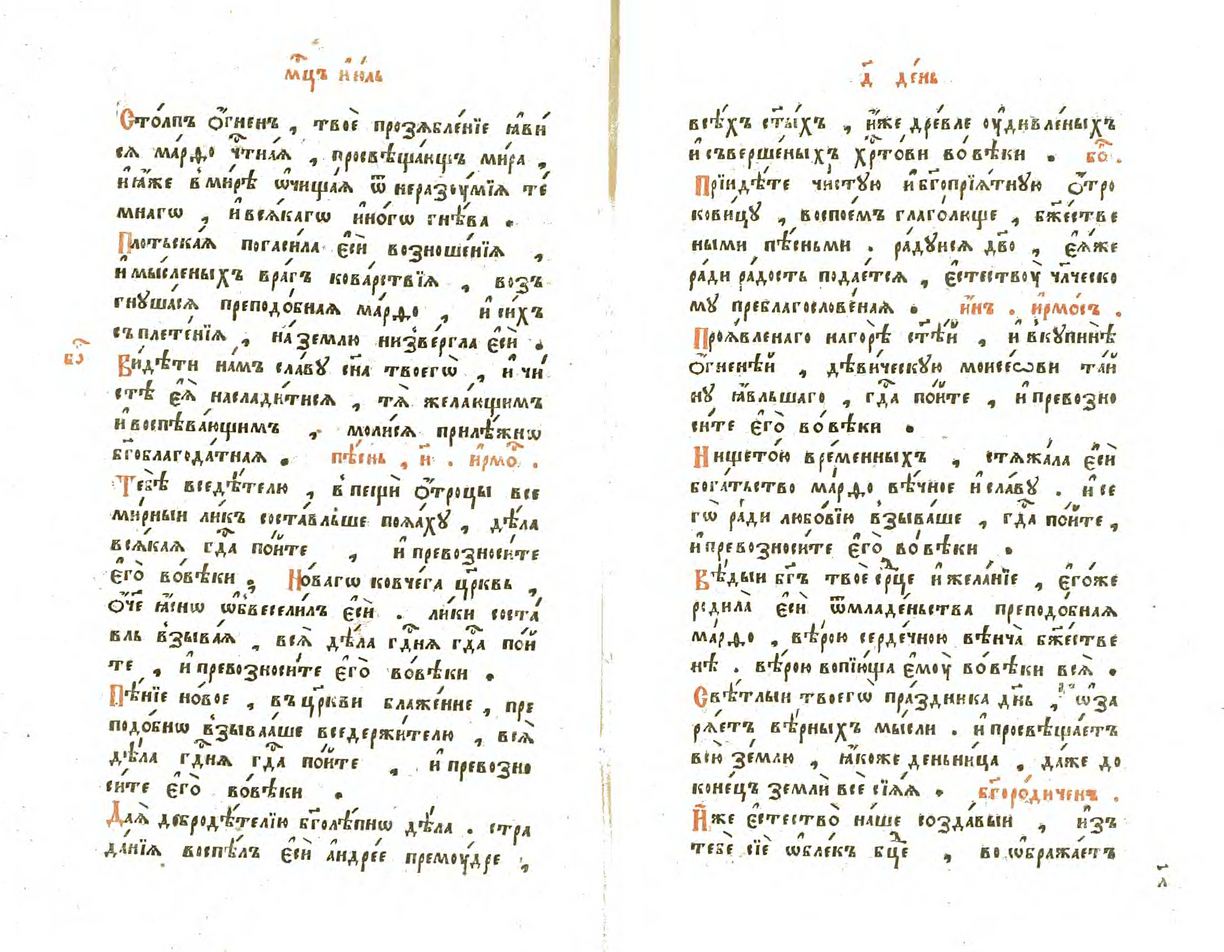 мⷭ҇цъ і҆ю́ль
Сто́лпъ ѻ҆́гненъ , твоѐ прозѧбле́нїе ꙗ҆ви́
сѧ ма́рѳо чⷭ҇тна́ѧ , просвѣща́ющъ ми́ра ,
и҆ ꙗ҆́же в ми́рѣ ѡ҆чища́ѧ ѿ неразꙋ́мїѧ те́
мнагѡ , и҆ всѧ́кагѡ и҆но́гѡ гнѣ́ва .
Пло́тьскаѧ погаси́ла є҆сѝ возноше́нїѧ ,
и҆ мы́сленыхъ вра́гъ кова́рствїѧ , возъ
гнꙋша́сѧ преподо́бнаѧ ма́рѳо , и҆ си́хъ
съплете́нїѧ , на́ землю низве́ргла є҆сѝ .
бⷪ҇
Ви́дѣти на́мъ сла́вꙋ сн҃а твоегѡ̀ , и҆ чи́
стѣ є҆ѧ̀ наслади́тисѧ , тѧ̀ жела́ющимъ
и҆ воспѣва́ющимъ , моли́сѧ прилѣ́жнѡ
бг҃облагода́тнаѧ . пѣ́снь , и҃ . і҆рмо́ⷭ .
Тебѣ̀ вседѣ́телю , в пещѝ ѻ҆́троцы все
ми́рныи ли́къ соста́вльше поѧ́хꙋ , дѣ́ла
всѧ́каѧ гдⷭ҇а по́ите , и҆ превозноси́те
є҆го̀ во́ вѣки . Но́вагѡ ковче́га цр҃ковь ,
ѻ҆́ч҃е ꙗ҆́снѡ ѡ҆бвесели́лъ є҆сѝ . ли́ки соста́
вль взыва́ѧ , всѧ̀ дѣ́ла гдⷭ҇нѧ гдⷭ҇а по́и
те , и҆ превозноси́те є҆го̀ во́ вѣки .
Пѣ́нїе но́вое , въ цр҃кви блаже́нне , пре
подо́бнѡ взыва́аше вседержи́телю , всѧ̀
дѣ́ла гдⷭ҇нѧ гдⷭ҇а по́ите , и҆ превозно
си́те є҆го̀ во́ вѣки .
Даѧ̀ добродѣ́телїю бг҃олѣ́пнѡ дѣ́ла . стра
да́нїѧ воспѣ́лъ є҆сѝ а҆ндре́е премꙋ́дре ,
д҃ де́нь
всѣ́хъ ст҃ы́хъ , и҆́же дре́вле ᲂу҆дивле́ныхъ
и҆ съверше́ныхъ хрⷭ҇то́ви во́ вѣки . бⷪ҇ .
Прїидѣ́те чи́стꙋю и҆ бг҃опрїѧ́тнꙋю ѻ҆тро
кови́цꙋ , воспое́мъ глаго́люще , бж҃е́стве
ными пѣ́сньми . ра́дꙋисѧ дв҃о , є҆ѧ́же
ра́ди ра́дость подае́тсѧ , є҆стествꙋ̀ чл҃ческо
мꙋ преблагослове́наѧ . и҆́нъ . і҆рмо́съ .
Проѧвле́наго на горѣ̀ ст҃ѣ́и , и҆ в кꙋпинѣ̀
ѻ҆́гненѣи , дѣви́ческꙋю моисе́ѡви та́и
нꙋ ꙗ҆́вльшаго , гдⷭ҇а по́ите , и҆ превозно
си́те є҆го̀ во́ вѣки .
Нището́ю вре́менныхъ , стѧжа́ла є҆сѝ
бога́тьство ма́рѳо вѣ́чное и҆ сла́вꙋ . и҆ се
гѡ̀ ра́ди любо́вїю взыва́ше , гдⷭ҇а по́ите ,
и҆ превозноси́те є҆го̀ во́ вѣки .
Вѣ́дыи бг҃ъ твоѐ срⷣце и҆ жела́нїе , є҆го́же
роди́ла є҆сѝ ѿ младе́ньства преподо́бнаѧ
ма́рѳо , вѣ́рою серде́чною вѣнча̀ бж҃е́стве
нѣ . вѣ́рою вопїю́ща є҆мꙋ̀ во́ вѣки всѧ̀ .
Свѣ́тлыи твоегѡ̀ пра́здника дн҃ь , ѡ҆за
рѧ́етъ вѣ́рныхъ мы́сли . и҆ просвѣща́етъ
всю̀ зе́млю , ꙗ҆́коже деньни́ца , да́же до
коне́цъ землѝ всѐ сїѧ́ѧ . бг҃оро́диченъ .
И҆́же є҆стество̀ на́ше созда́выи , и҆зъ
тебѐ сїѐ ѡ҆бле́къ бцⷣе , во ѡ҆бража́етъ
л҃